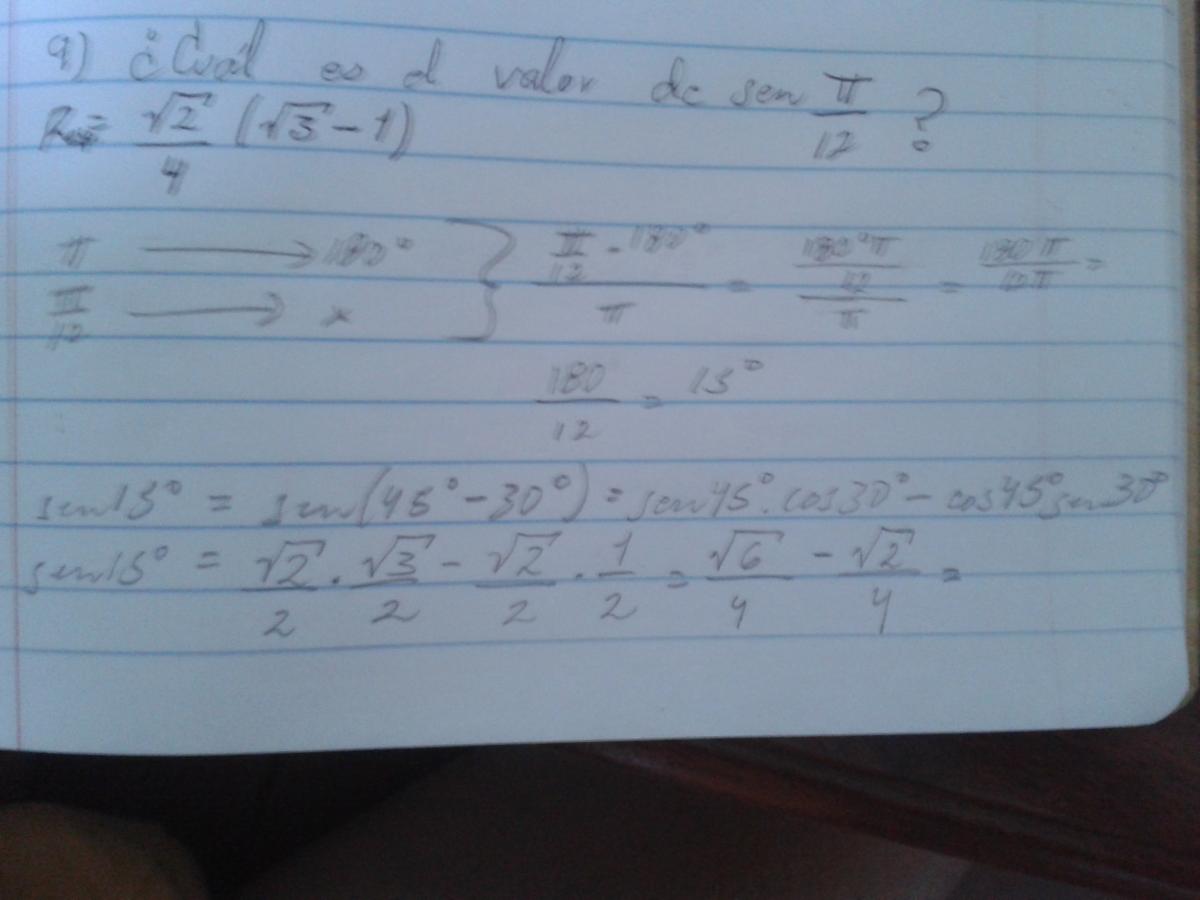 9) ¿Cuál es el valor de sen π/12 ?
R= √2/4 (√3 - 1)
π → 180°
π/12 → x } (π/12 · 180°)/π = (180°π/12)/π = 180π/12π =
180/12 = 15°
sen15° = sen(45° - 30°) = sen45° · cos30° - cos45° sen30°
sen15° = √2/2 · √3/2 - √2/2 · 1/2 = √6/4 - √2/4 =